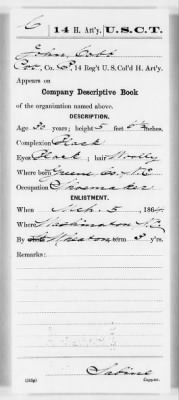 C | 14 H. Art'y. | U.S.C.T.
John Cobb
Pvt., Co. B, 14 Reg't U. S. Col'd H. Art'y.
Appears on
Company Descriptive Book
of the organization named above.
DESCRIPTION.
Age 30 years; height 5 feet 6½ inches.
Complexion Black
Eyes Black; hair Woolly
Where born Greene Co. N.C.
Occupation Shoemaker
ENLISTMENT.
When Mch. 5, 1864.
Where Washington N.C.
By Wheaton; term 3 y'rs.
Remarks:
Sabine
(383g) Copyist.